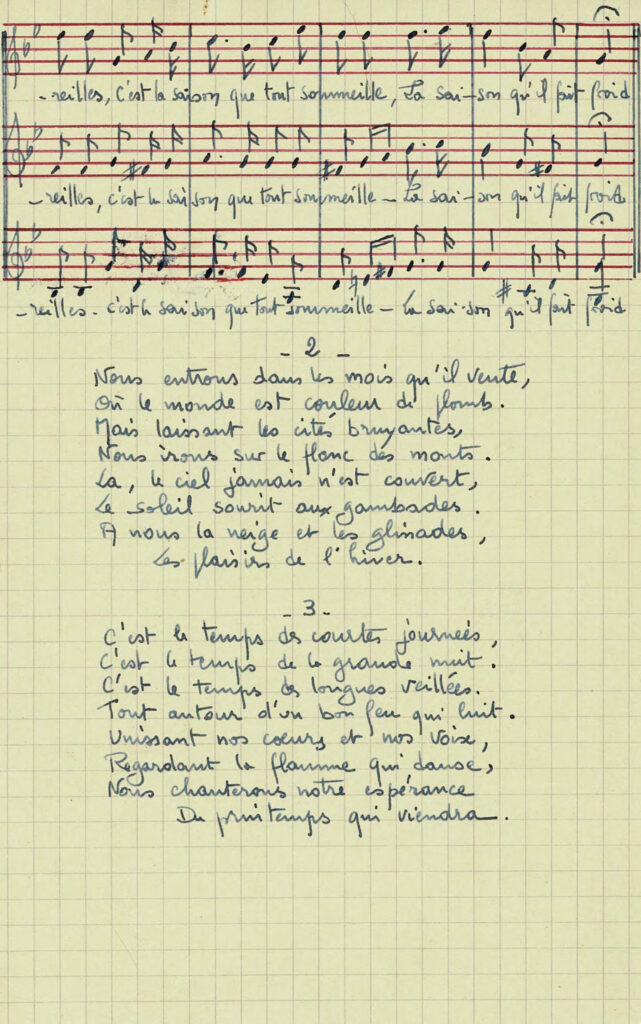 -reilles, C'est la saison que tout sommeille, La sai-son qu'il fait froid
-reilles, c'est la sai son que tout sommeille - La sai-son qu'il fait froid
-reilles - c'est la sai son que tout sommeille - La sai-son qu'il fait froid
- 2 -
Nous entrons dans les mois qu'il vente,
Où le monde est couleur de plomb.
Mais laissant les cités bruyantes,
Nous irons sur le flanc des monts.
La, le ciel jamais n'est couvert,
Le soleil sourit aux gambades.
A nous la neige et les glissades,
Les plaisirs de l'hiver.
- 3 -
C'est le temps des courtes journées,
C'est le temps de la grande nuit.
C'est le temps des longues veillées.
Tout autour d'un bon feu qui luit.
Unissant nos coeurs et nos voix,
Regardant la flamme qui danse,
Nous chanterons notre espérance
Du printemps qui viendra.